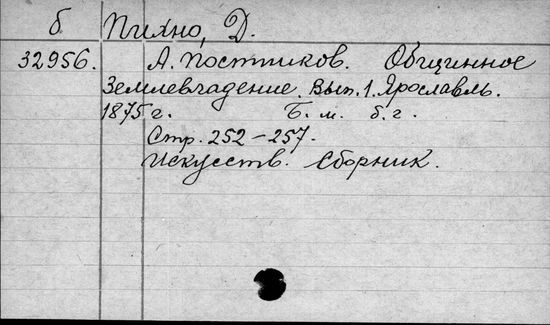 б Пихно, Д.
32956. А. Постников. Общинное
Землевладение. Вып. 1. Ярославль.
1875 г. Б. м. б. г.
Стр. 252-257.
Искусств. сборник.